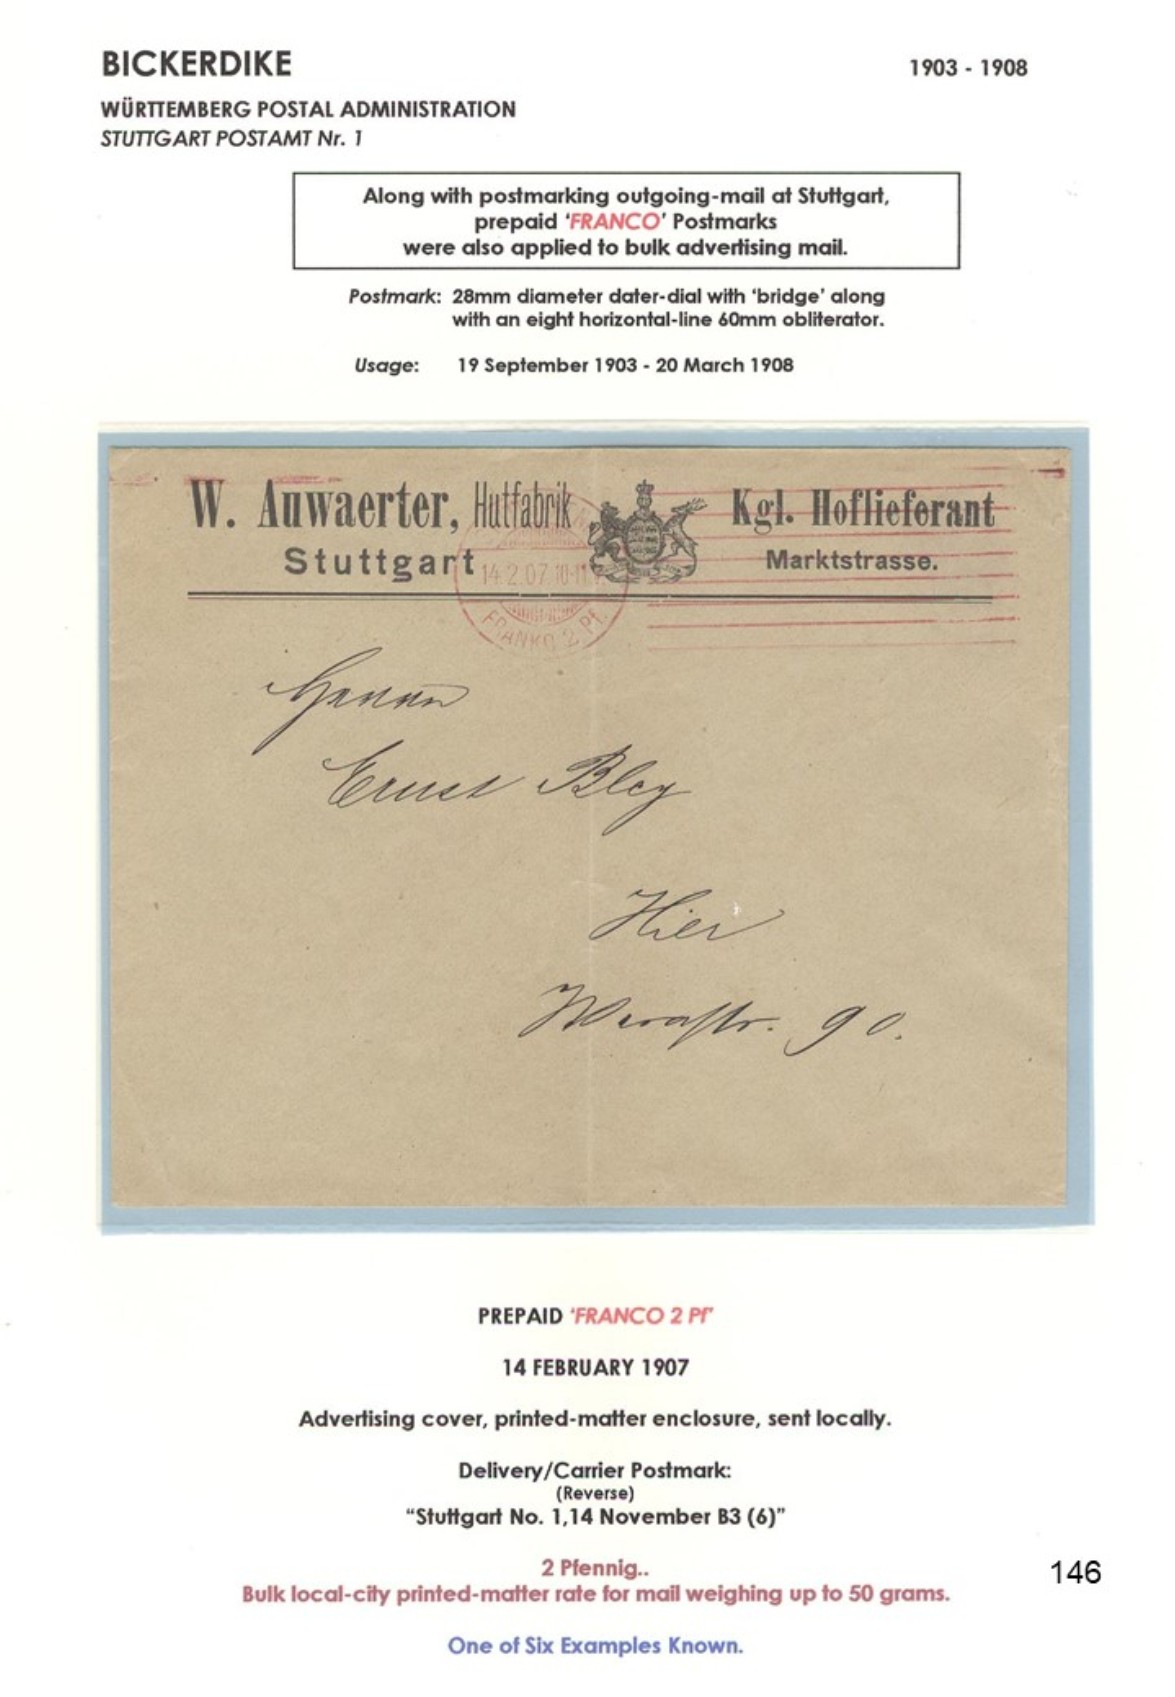 BICKERDIKE
1903 - 1908
WÜRTTEMBERG POSTAL ADMINISTRATION
STUTTGART POSTAMT Nr. 1
Along with postmarking outgoing-mail at Stuttgart,
prepaid 'FRANCO' Postmarks
were also applied to bulk advertising mail.
Postmark: 28mm diameter dater-dial with 'bridge' along
with an eight horizontal-line 60mm obliterator.
Usage: 19 September 1903 - 20 March 1908
W. Auwaerter, Hutfabrik
Kgl. Hoflieferant
Stuttgart
Marktstrasse.
14.2.07. 10-11
FRANKO 2 Pf.
Herrn
Ernst Bley
Hier
Werastr. 90.
PREPAID 'FRANCO 2 Pf'
14 FEBRUARY 1907
Advertising cover, printed-matter enclosure, sent locally.
Delivery/Carrier Postmark:
(Reverse)
"Stuttgart No. 1,14 November B3 (6)"
2 Pfennig..
146
Bulk local-city printed-matter rate for mail weighing up to 50 grams.
One of Six Examples Known.